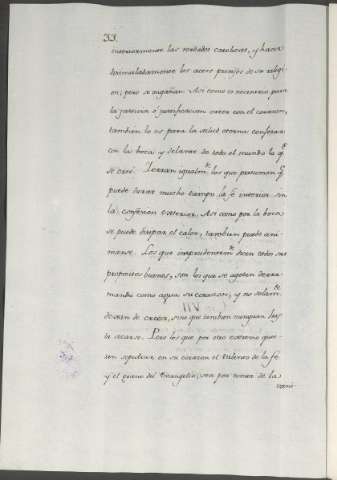 33.
interiormente las verdades catolicas, y hacer
disimuladamente los actos precisos de su religi-
on; pero se engañan. Asi como es necesario para
la justicia ó justificacion creer con el corazon,
tambien lo es para la salud eterna confesar
con la boca y delante de todo el mundo lo q.e
se cree. Yerran igualm.te los que presumen q.e
puede durar mucho tiempo la fe interior sin
la confesion exterior. Asi como por la boca
se puede disipar el calor, tambien puede ani-
marse. Los que imprudentem.te dicen todos sus
propositos buenos, son los que se agotan derra-
mando como agua su corazon, y no solam.te
dexan de creer, sino que tambien menguan hasta
secarse. Pero los que por otro extremo quie-
ren sepultar en su corazon el talento de la fe
y el grano del Evangelio, sea por temor de la